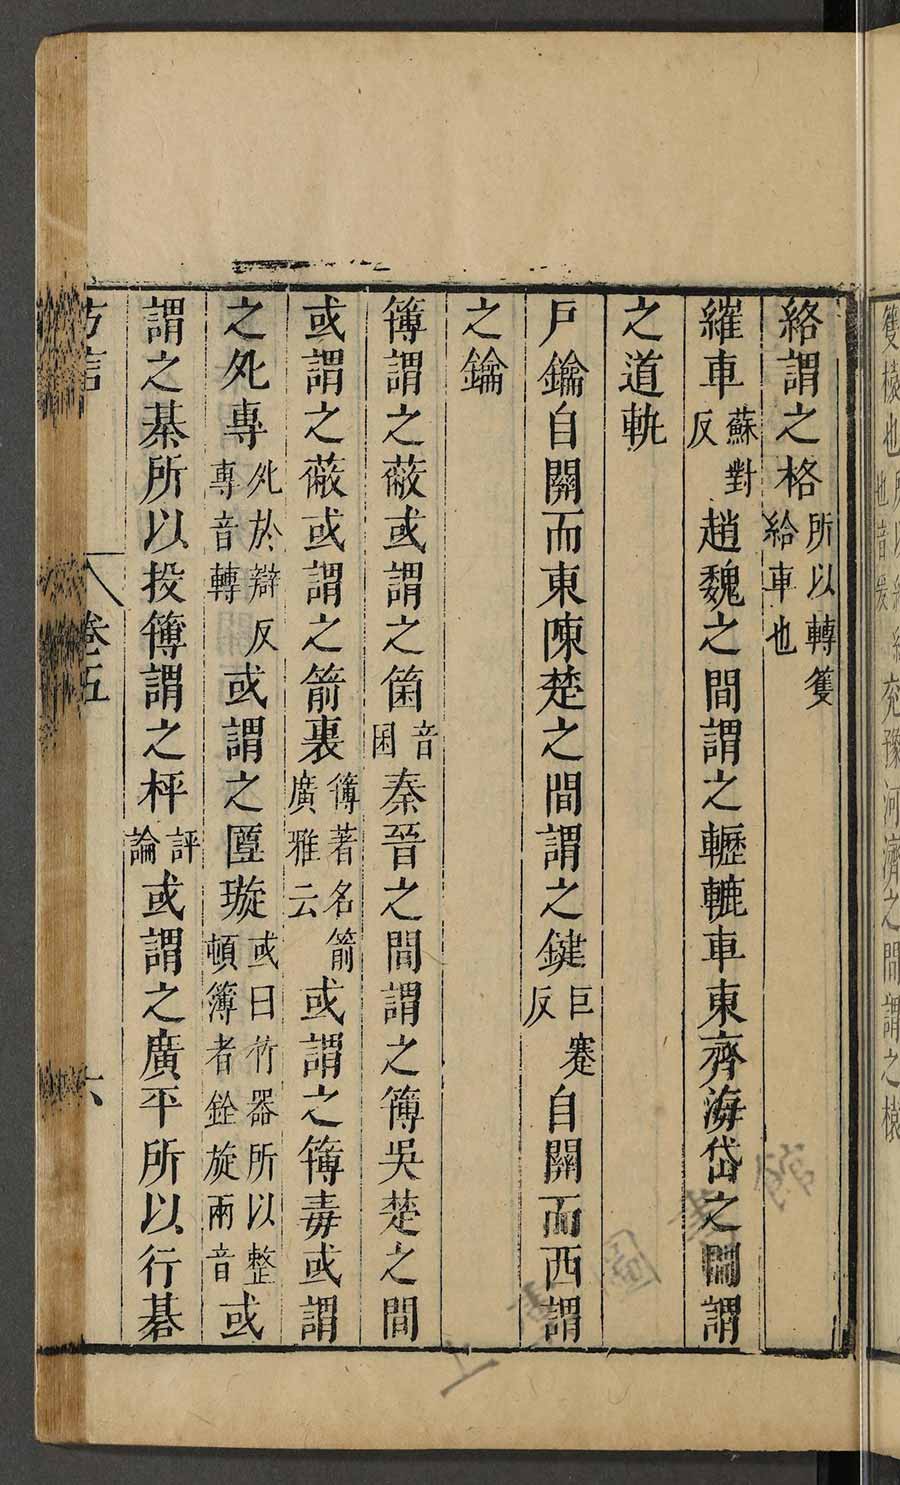 絡謂之格所以轉籰給車也
維車蘇對反趙魏之間謂之轣轆車東齊海岱之間謂
之道軌
戶鑰自關而東陳楚之間謂之鍵巨蹇反自關而西謂
之鑰
簙謂之蔽或謂之箘音困秦晉之間謂之簙吳楚之間
或謂之蔽或謂之箭裏簙著名箭廣雅云或謂之簙毒或謂
之夗專夗於辯反專音轉或謂之匴璇或曰竹器所以整頓簿者銓旋兩音或
謂之棊所以投簙謂之枰評論或謂之廣平所以行棊
方言
卷五
六